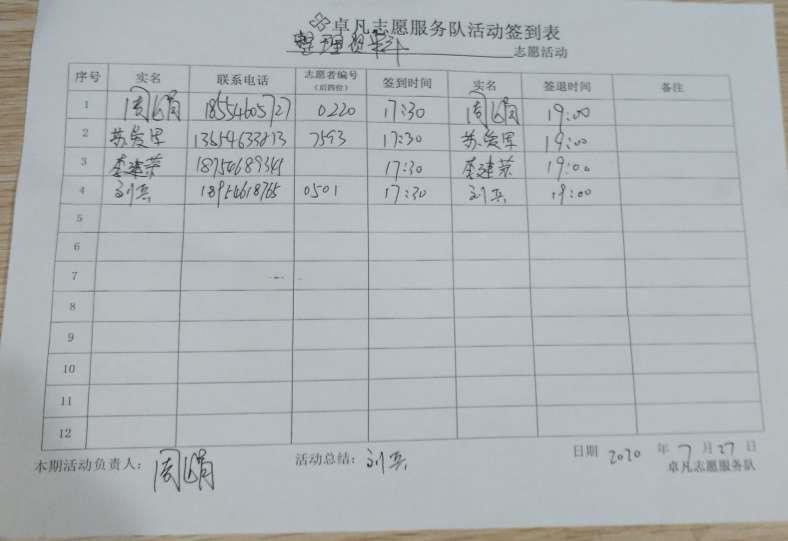 卓凡志愿服务队活动签到表
整理 志愿活动
序号 实名 联系电话 志愿者编号（后四位） 签到时间 实名 签退时间 备注
1 周娟 18554605727 0220 17:30 周娟 19:00
2 苏爱军 7593 17:30 苏爱军 19:00
3 李建荣 17:30 李建荣 19:00
4 刘兵 18954618765 0501 17:30 刘兵 19:00
5
6
7
8
9
10
11
12
本期活动负责人： 周娟 活动总结： 刘兵 日期 2020 年 7 月 27 日
卓凡志愿服务队